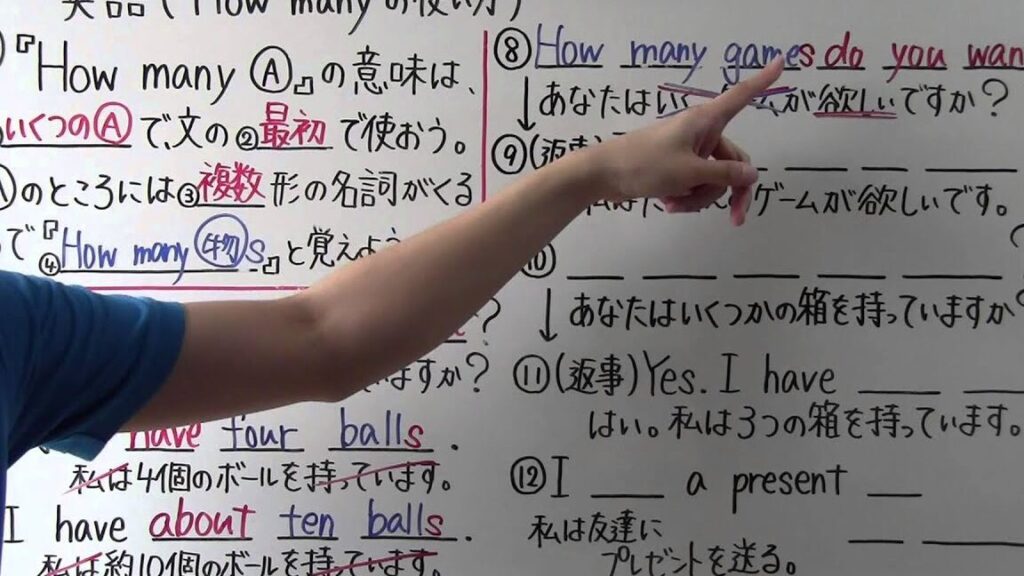 英語(How many の使い方)
『How many Ⓐ』の意味は、
いくつのⒶで、文の②最初で使おう。
のところには③複数形の名詞がくる
で『How many 物s』と覚えよう
④
?
ますか?
have four balls.
私は4個のボールを持っています。
I have about ten balls.
私は約10個のボールを持っています。
⑧How many games do you wan
↓あなたはいくが欲しいですか?
⑨(返事)
ゲームが欲しいです。
⑩
↓あなたはいくつかの箱を持っていますか
⑪(返事)Yes. I have
はい。私は3つの箱を持っています。
⑫I a present
私は友達に
プレゼントを送る。